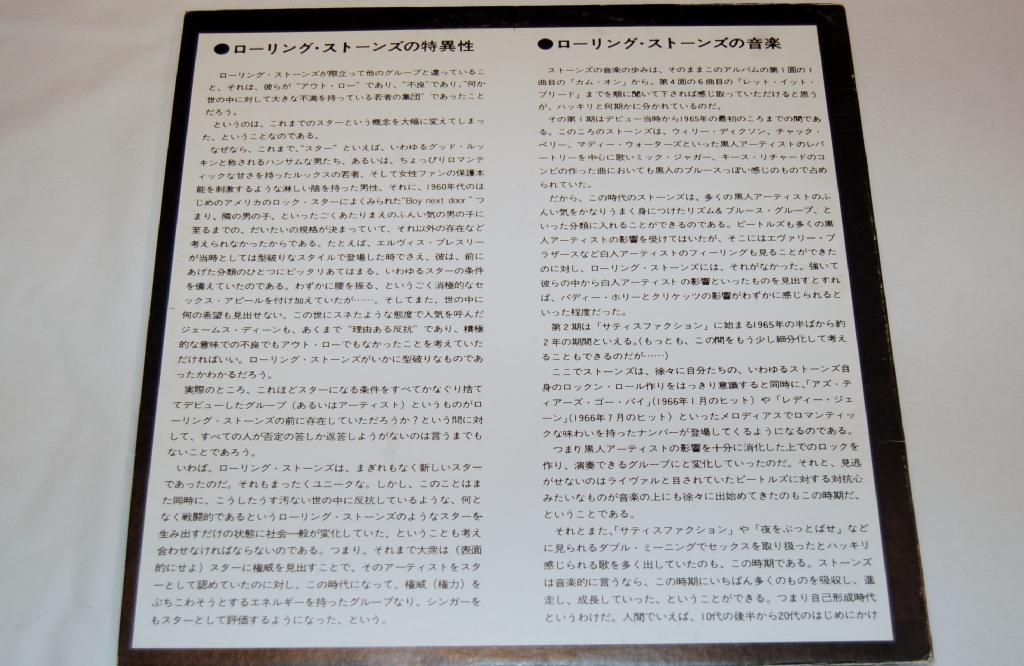 ●ローリング・ストーンズの特異性
ローリング・ストーンズが際立って他のグループと違っているこ
と、それは、彼らが“アウト・ロー”であり、“不良”であり、“何か
世の中に対して大きな不満を持っている若者の集団”であったこと
だろう。
というのは、これまでのスターという概念を大幅に変えてしまっ
た、ということなのである。
なぜなら、これまで、“スター”といえば、いわゆるグッド・ルッ
キンと称されるハンサムな男たち、あるいは、ちょっぴりロマンテ
ィックな甘さを持ったルックスの若者、そして女性ファンの保護本
能を刺激するような淋しい陰を持った男性、それに、1960年代のは
じめのアメリカのロック・スターによくみられた“Boy next door”つ
まり、隣の男の子、といったごくあたりまえのふんい気の男の子に
至るまでの、だいたいの規格が決まっていて、それ以外の存在など
考えられなかったからである。たとえば、エルヴィス・プレスリー
が当時としては型破りなスタイルで登場した時でさえ、彼は、前に
あげた分類のひとつにピッタリあてはまる、いわゆるスターの条件
を備えていたのである。わずかに腰を振る、というごく消極的なセ
ックス・アピールを付け加えていたが……。そしてまた、世の中に
何の希望も見出せない、この世にスネたような態度で人気を呼んだ
ジェームス・ディーンも、あくまで“理由ある反抗”であり、積極
的な意味での不良でもアウト・ローでもなかったことを考えていた
だければいい。ローリング・ストーンズがいかに型破りなものであ
ったかわかるだろう。
実際のところ、これほどスターになる条件をすべてかなぐり捨て
てデビューしたグループ（あるいはアーティスト）というものがロ
ーリング・ストーンズの前に存在していただろうか？という問に対
して、すべての人が否定の答しか返答しようがないのは言うまでも
ないことであろう。
いわば、ローリング・ストーンズは、まぎれもなく新しいスター
であったのだ。それもまったくユニークな。しかし、このことはま
た同時に、こうしたうす汚ない世の中に反抗しているような、何と
なく戦闘的であるというローリング・ストーンズのようなスターを
生み出すだけの状態に社会一般が変化していた、ということも考え
合わせなければならないのである。つまり、それまで大衆は（表面
的にせよ）スターに権威を見出すことで、そのアーティストをスタ
ーとして認めていたのに対し、この時代になって、権威（権力）を
ぶちこわそうとするエネルギーを持ったグループなり、シンガーを
もスターとして評価するようになった、という。
●ローリング・ストーンズの音楽
ストーンズの音楽の歩みは、そのままこのアルバムの第1面の1
曲目の「カム・オン」から、第4面の6曲目の「レット・イット・
ブリード」までを順に聞いて下されば感じ取っていただけると思う
が、ハッキリと何期かに分かれているのだ。
その第1期はデビュー当時から1965年の最初のころまでの間であ
る。このころのストーンズは、ウィリー・ディクソン、チャック・
ベリー、マディー・ウォーターズといった黒人アーティストのレパ
ートリーを中心に歌いミック・ジャガー、キース・リチャードのコ
ンビの作った曲においても黒人のブルースっぽい感じのもので占め
られていた。
だから、この時代のストーンズは、多くの黒人アーティストのふ
んい気をかなりうまく身につけたリズム&ブルース・グループ、と
いった分類に入れることができるのである。ビートルズも多くの黒
人アーティストの影響を受けてはいたが、そこにはエヴァリー・ブ
ラザースなど白人アーティストのフィーリングも見ることができた
のに対し、ローリング・ストーンズには、それがなかった。強いて
彼らの中から白人アーティストの影響といったものを見出すとすれ
ば、バディー・ホリーとクリケッツの影響がわずかに感じられると
いった程度だった。
第2期は「サティスファクション」に始まる1965年の半ばから約
2年の期間といえる。（もっとも、この間をもう少し細分化して考え
ることもできるのだが……）
ここでストーンズは、徐々に自分たちの、いわゆるストーンズ自
身のロックン・ロール作りをはっきり意識すると同時に、「アズ・テ
ィアーズ・ゴー・バイ」（1966年1月のヒット）や「レディー・ジェ
ーン」（1966年7月のヒット）といったメロディアスでロマンティッ
クな味わいを持ったナンバーが登場してくるようになるのである。
つまり黒人アーティストの影響を十分に消化した上でのロックを
作り、演奏できるグループにと変化していったのだ。それと、見逃
がせないのはライヴァルと目されていたビートルズに対する対抗心
みたいなものが音楽の上にも徐々に出始めてきたのもこの時期だ、
ということである。
それとまた、「サティスファクション」や「夜をぶっとばせ」など
に見られるダブル・ミーニングでセックスを取り扱ったとハッキリ
感じられる歌を多く出していたのも、この時期である。ストーンズ
は音楽的に言うなら、この時期にいちばん多くのものを吸収し、進
走し、成長していった、ということができる。つまり自己形成時代
というわけだ。人間でいえば、10代の後半から20代のはじめにかけ